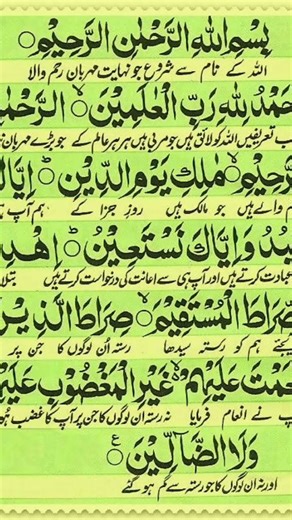 بِسْمِ اللهِ الرَّحْمٰنِ الرَّحِيْمِ
اللہ کے نام سے شروع جو نہایت مہربان رحم والا
حَمْدُ لِلّٰهِ رَبِّ الْعٰلَمِيْنَ الرَّحْمٰ
ب تعریفیں اللہ کو لائق ہیں جو مربی ہیں ہر ہر عالم کے جو بڑے مہربان
رَّحِيْمِ مٰلِكِ يَوْمِ الدِّيْنِ اِيَّا
م والے ہیں جو مالک ہیں روز جزا کے ہم آپ ہی
بُدُ وَاِيَّاكَ نَسْتَعِيْنُ اِهْدِ
عبادت کرتے ہیں اور آپ ہی سے اعانت کی درخواست کرتے ہیں بتلا
صِّرَاطَ الْمُسْتَقِيْمَ صِرَاطَ الَّذِيْنَ
ہم کو رستہ سیدھا رستہ ان لوگوں کا جن پر
عَمْتَ عَلَيْهِمْ غَيْرِ الْمَغْضُوْبِ عَلَيْهِ
پ نے انعام فرمایا نہ رستہ ان لوگوں کا جن پر آپ کا غضب
وَلَا الضَّآلِّيْنَ
اور نہ ان لوگوں کا جو رستہ سے گم ہو گئے